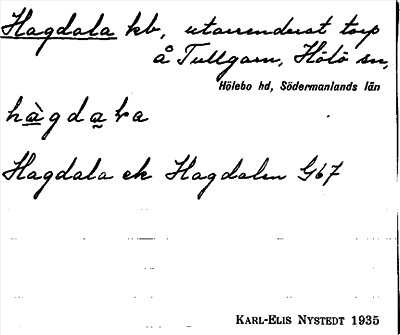 Hagdala kb, utarrenderat torp
å Tullgarn, Hölö sn,
Hölebo hd, Södermanlands län
hàgdaꞎa
Hagdala ek Hagdalen Gb7
KARL-ELIS NYSTEDT 1935